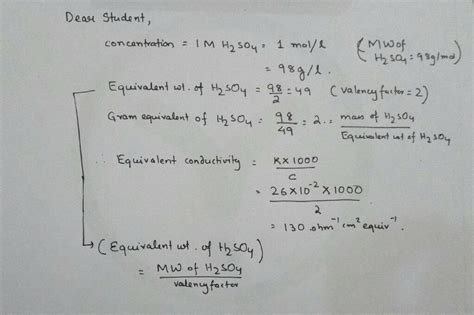 Dear Student,
concentration = 1 M H₂SO₄ = 1 mol/l (MW of H₂SO₄ = 98g/mol)
= 98g/l.
Equivalent wt. of H₂SO₄ = 98/2 = 49 (valency factor = 2)
Gram equivalent of H₂SO₄ = 98/49 = 2 = mass of H₂SO₄/Equivalent wt of H₂SO₄
∴ Equivalent conductivity = K×1000/C
= 26×10⁻²×1000/2
= 130 ohm⁻¹ cm² equiv⁻¹.
(Equivalent wt. of H₂SO₄)
= MW of H₂SO₄/valency factor